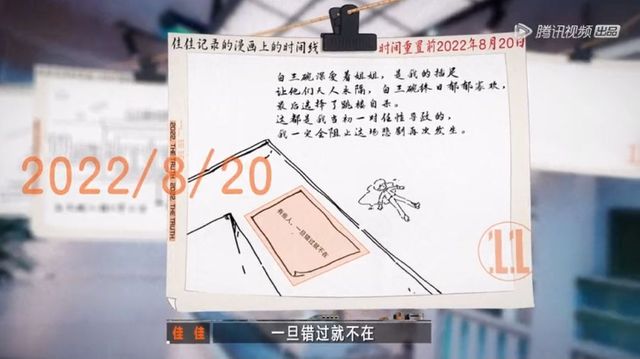 腾讯视频 出品
佳佳记录的漫画上的时间线
时间重置前2022年8月20日
白兰碗深爱着姐姐，是我的插足
让他们天人永隔，白兰碗终日郁郁寡欢，
最后选择了跳楼自杀。
这都是我当初一时任性导致的，
我一定会阻止这场悲剧再次发生。
2022/8/20
2022. THE TRUTH 2022. THE TRUTH
有些人，一旦错过就不在
11
佳佳
一旦错过就不在